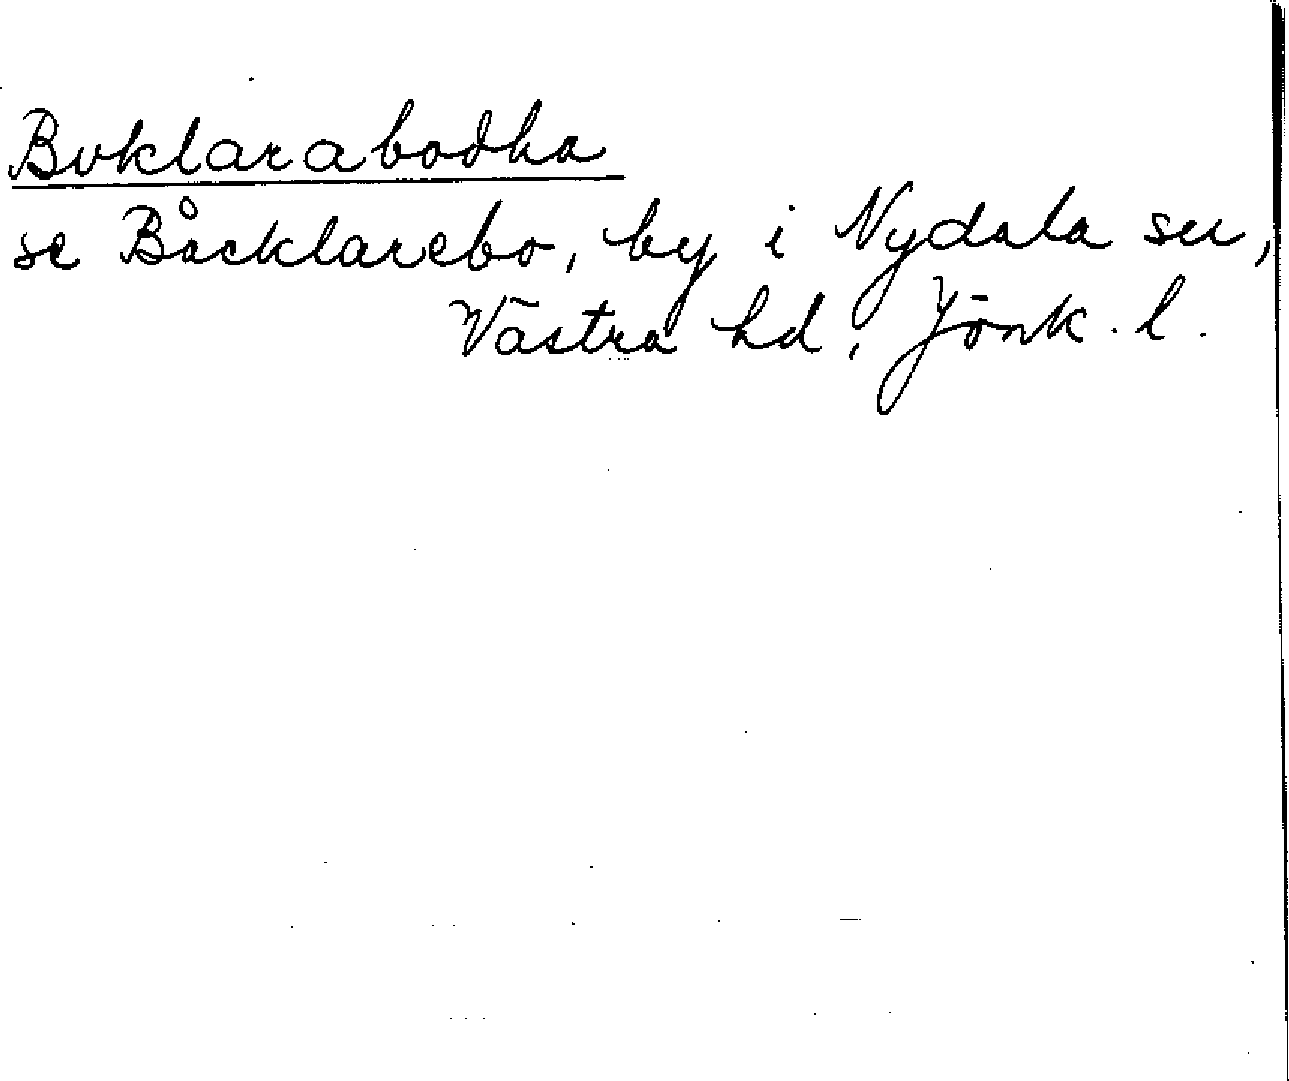 Boklarabodha
se Båcklarebo, by i Nydala sn,
Västra hd, Jönk. l.